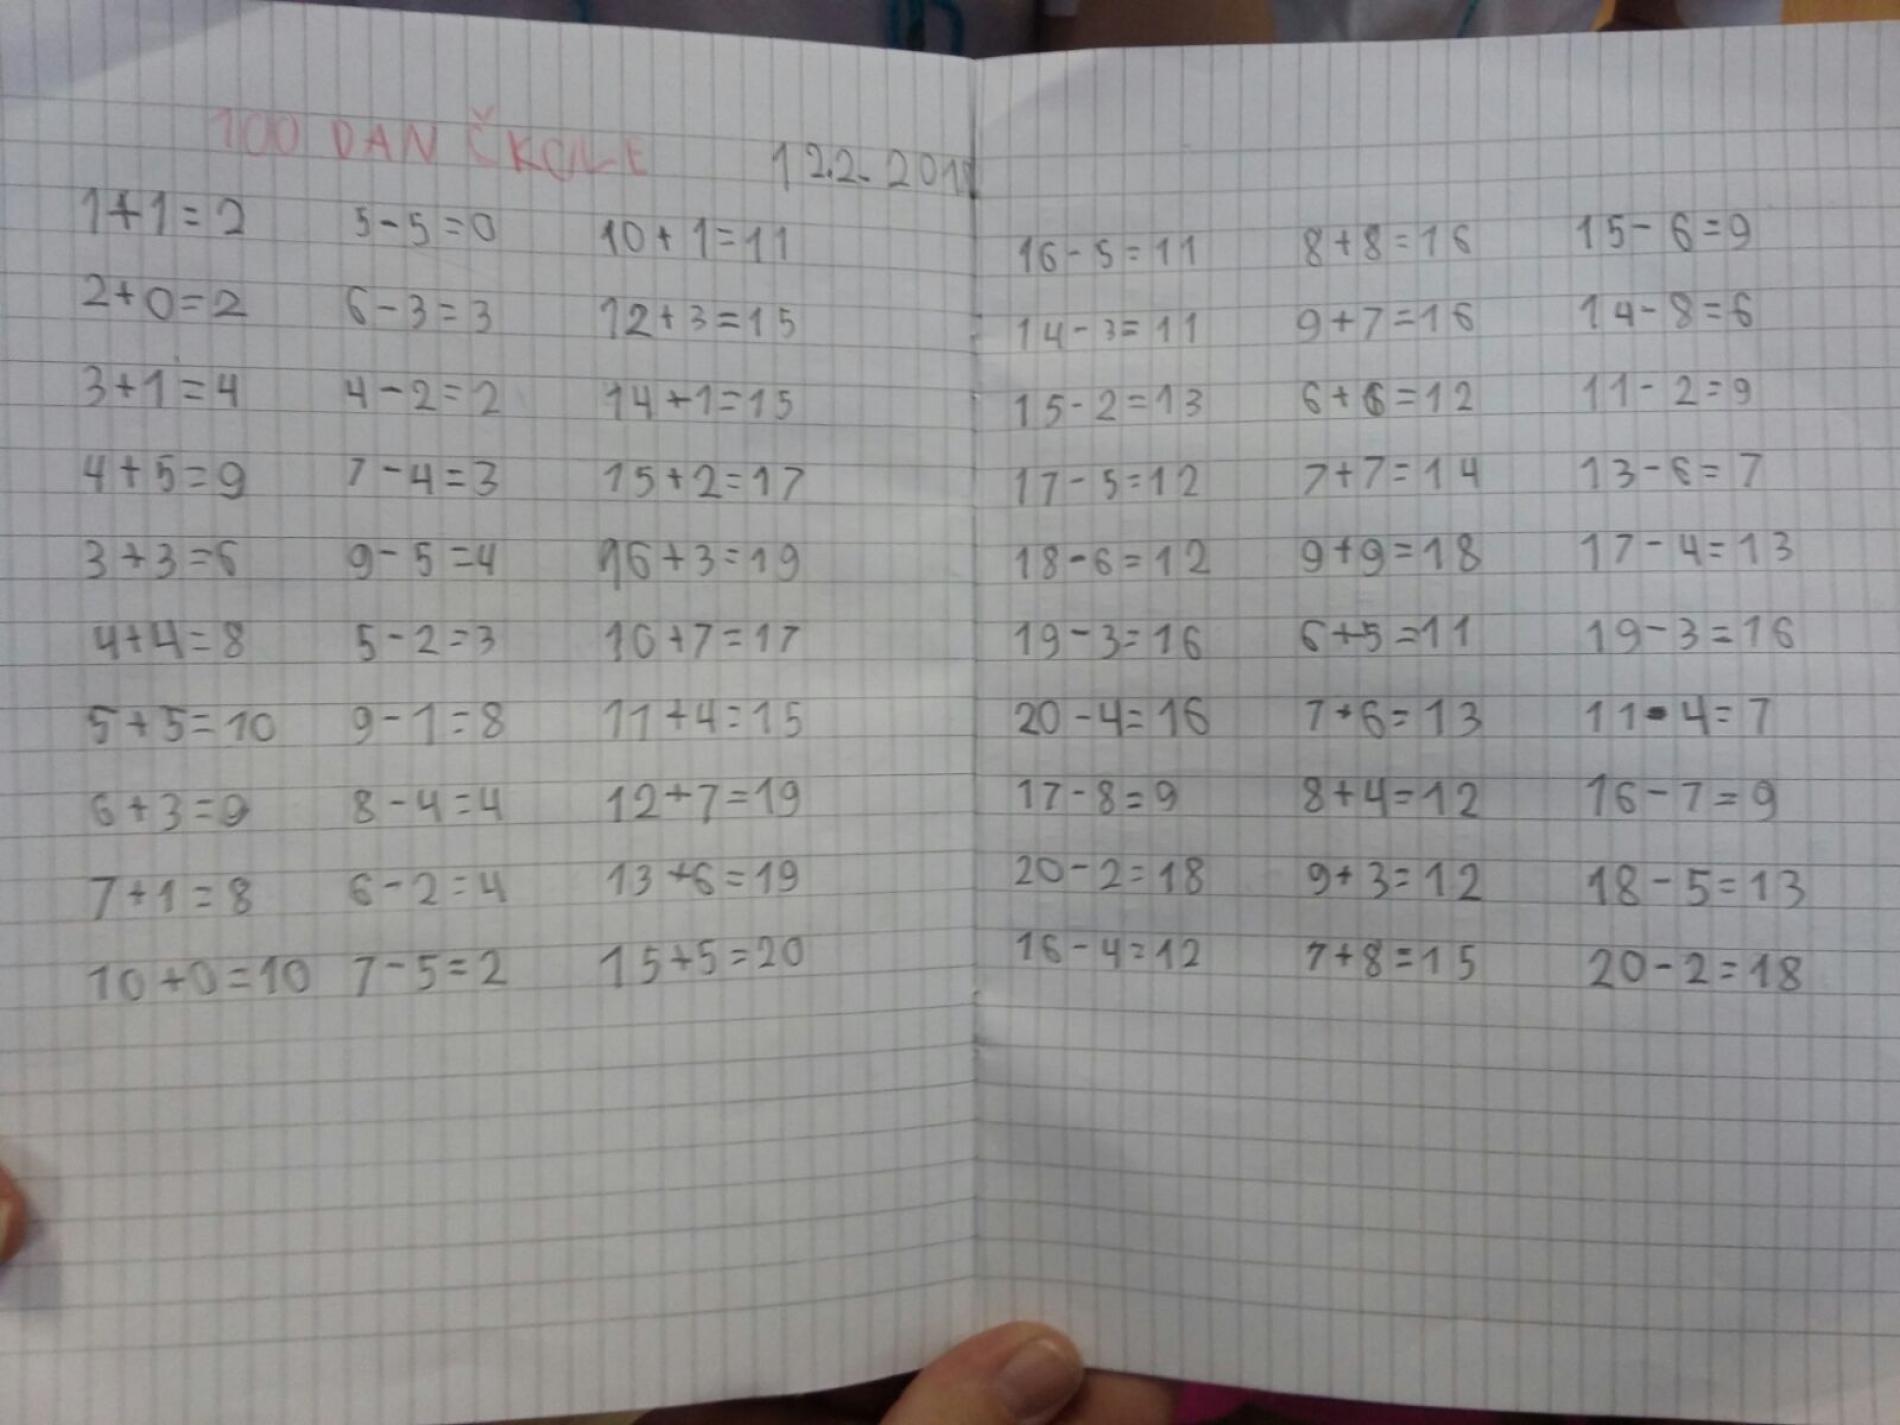 100 DAN ČKOLE 12.2.201
1+1=2 5-5=0 10+1=11
2+0=2 6-3=3 12+3=15
3+1=4 4-2=2 14+1=15
4+5=9 7-4=3 15+2=17
3+3=6 9-5=4 16+3=19
4+4=8 5-2=3 10+7=17
5+5=10 9-1=8 11+4=15
6+3=9 8-4=4 12+7=19
7+1=8 6-2=4 13+6=19
10+0=10 7-5=2 15+5=20
16-5=11 8+8=16 15-6=9
14-3=11 9+7=16 14-8=6
15-2=13 6+6=12 11-2=9
17-5=12 7+7=14 13-6=7
18-6=12 9+9=18 17-4=13
19-3=16 6+5=11 19-3=16
20-4=16 7+6=13 11-4=7
17-8=9 8+4=12 16-7=9
20-2=18 9+3=12 18-5=13
16-4=12 7+8=15 20-2=18